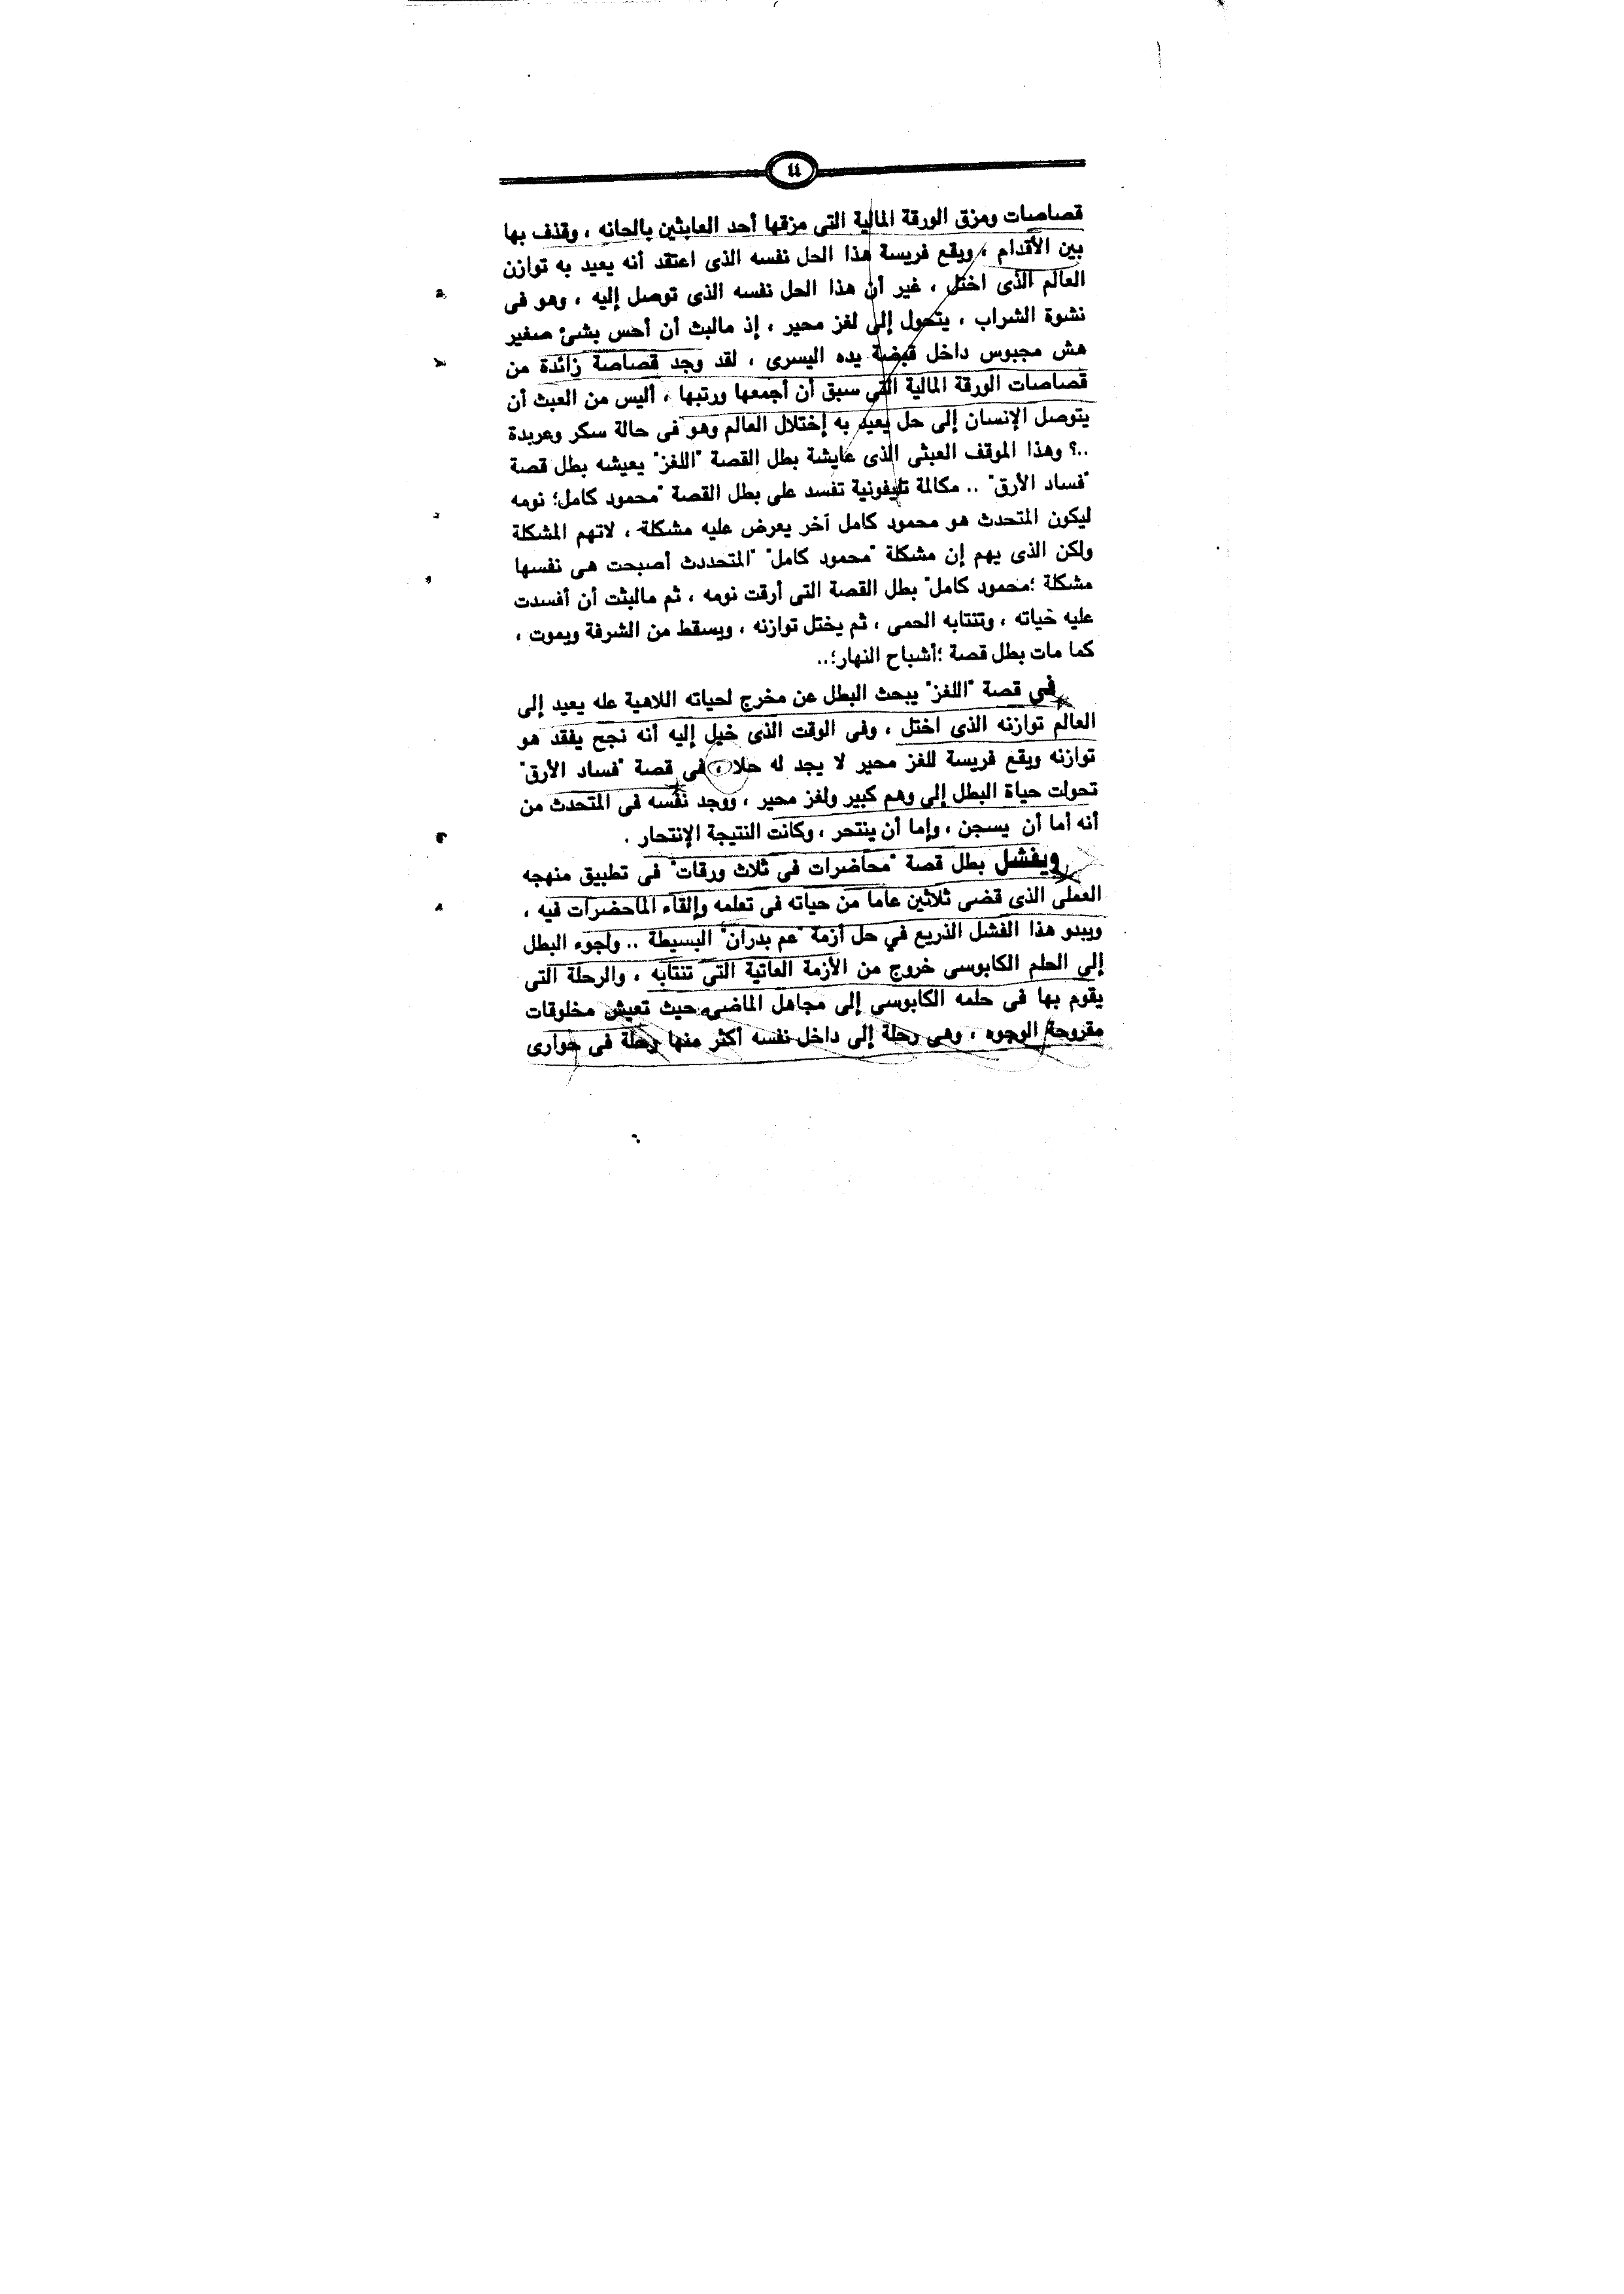 ١١
قصاصات ومزق الورقة المالية التى مزقها أحد العابثين بالحانه ، وقذف بها
بين الأقدام ، ويقع فريسة هذا الحل نفسه الذى اعتقد أنه يعيد به توازن
العالم الذى اختل ، غير أن هذا الحل نفسه الذى توصل إليه ، وهو فى
نشوة الشراب ، يتحول إلى لغز محير ، إذ مالبث أن أحس بشئ صغير
هش مجبوس داخل قبضة يده اليسرى ، لقد وجد قصاصة زائدة من
قصاصات الورقة المالية التى سبق أن أجمعها ورتبها ، أليس من العبث أن
يتوصل الإنسان إلى حل يعيد به إختلال العالم وهو فى حالة سكر وعربدة
..؟ وهذا الموقف العبثى الذى عايشة بطل القصة "اللغز" يعيشه بطل قصة
"فساد الأرق" .. مكالمة تليفونية تفسد على بطل القصة "محمود كامل؛ نومه
ليكون المتحدث هو محمود كامل آخر يعرض عليه مشكلة ، لاتهم المشكلة
ولكن الذى يهم إن مشكلة "محمود كامل" "المتحددث أصبحت هى نفسها
مشكلة ؛محمود كامل" بطل القصة التى أرقت نومه ، ثم مالبثت أن أفسدت
عليه حياته ، وتنتابه الحمى ، ثم يختل توازنه ، ويسقط من الشرفة ويموت ،
كما مات بطل قصة ؛أشباح النهار؛..
فى قصة "اللغز" يبحث البطل عن مخرج لحياته اللاهية عله يعيد إلى
العالم توازنه الذى اختل ، وفى الوقت الذى خيل إليه أنه نجح يفقد هو
توازنه ويقع فريسة للغز محير لا يجد له حلا ، فى قصة "فساد الأرق"
تحولت حياة البطل إلى وهم كبير ولغز محير ، ووجد نفسه فى المتحدث من
أنه أما أن يسجن ، وإما أن ينتحر ، وكانت النتيجة الإنتحار .
ويفشل بطل قصة "محاضرات فى ثلاث ورقات" فى تطبيق منهجه
العملى الذى قضى ثلاثين عاما من حياته فى تعلمه وإلقاء الماحضرات فيه ،
ويبدو هذا الفشل الذريع في حل أزمة "عم بدران" البسيطة .. ولجوء البطل
إلى الحلم الكابوسى خروج من الأزمة العاتية التى تنتابه ، والرحلة التى
يقوم بها فى حلمه الكابوسى إلى مجاهل الماضى حيث تعيش مخلوقات
مقروحة الوجوه ، وهى رحلة إلى داخل نفسه أكثر منها رحلة فى حوارى